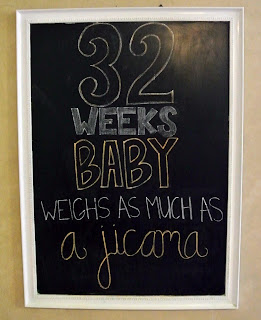 32
WEEKS
BABY
WEIGHS AS MUCH AS
a jicama